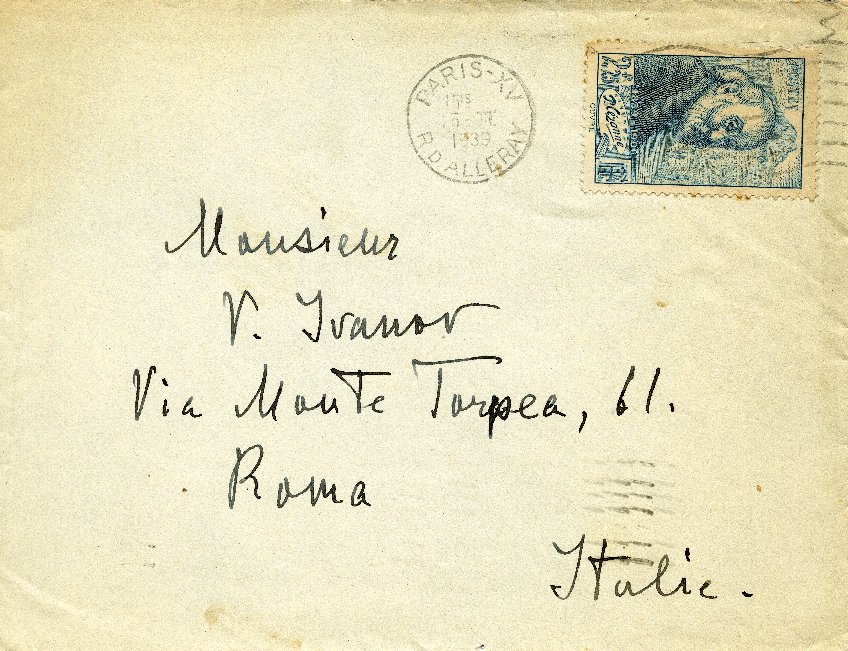 PARIS-XV
1939
R. D'ALLERAY
2F25
Cézanne
POSTES
Monsieur
V. Ivanov
Via Monte Torpea, 61.
Roma
Italie.